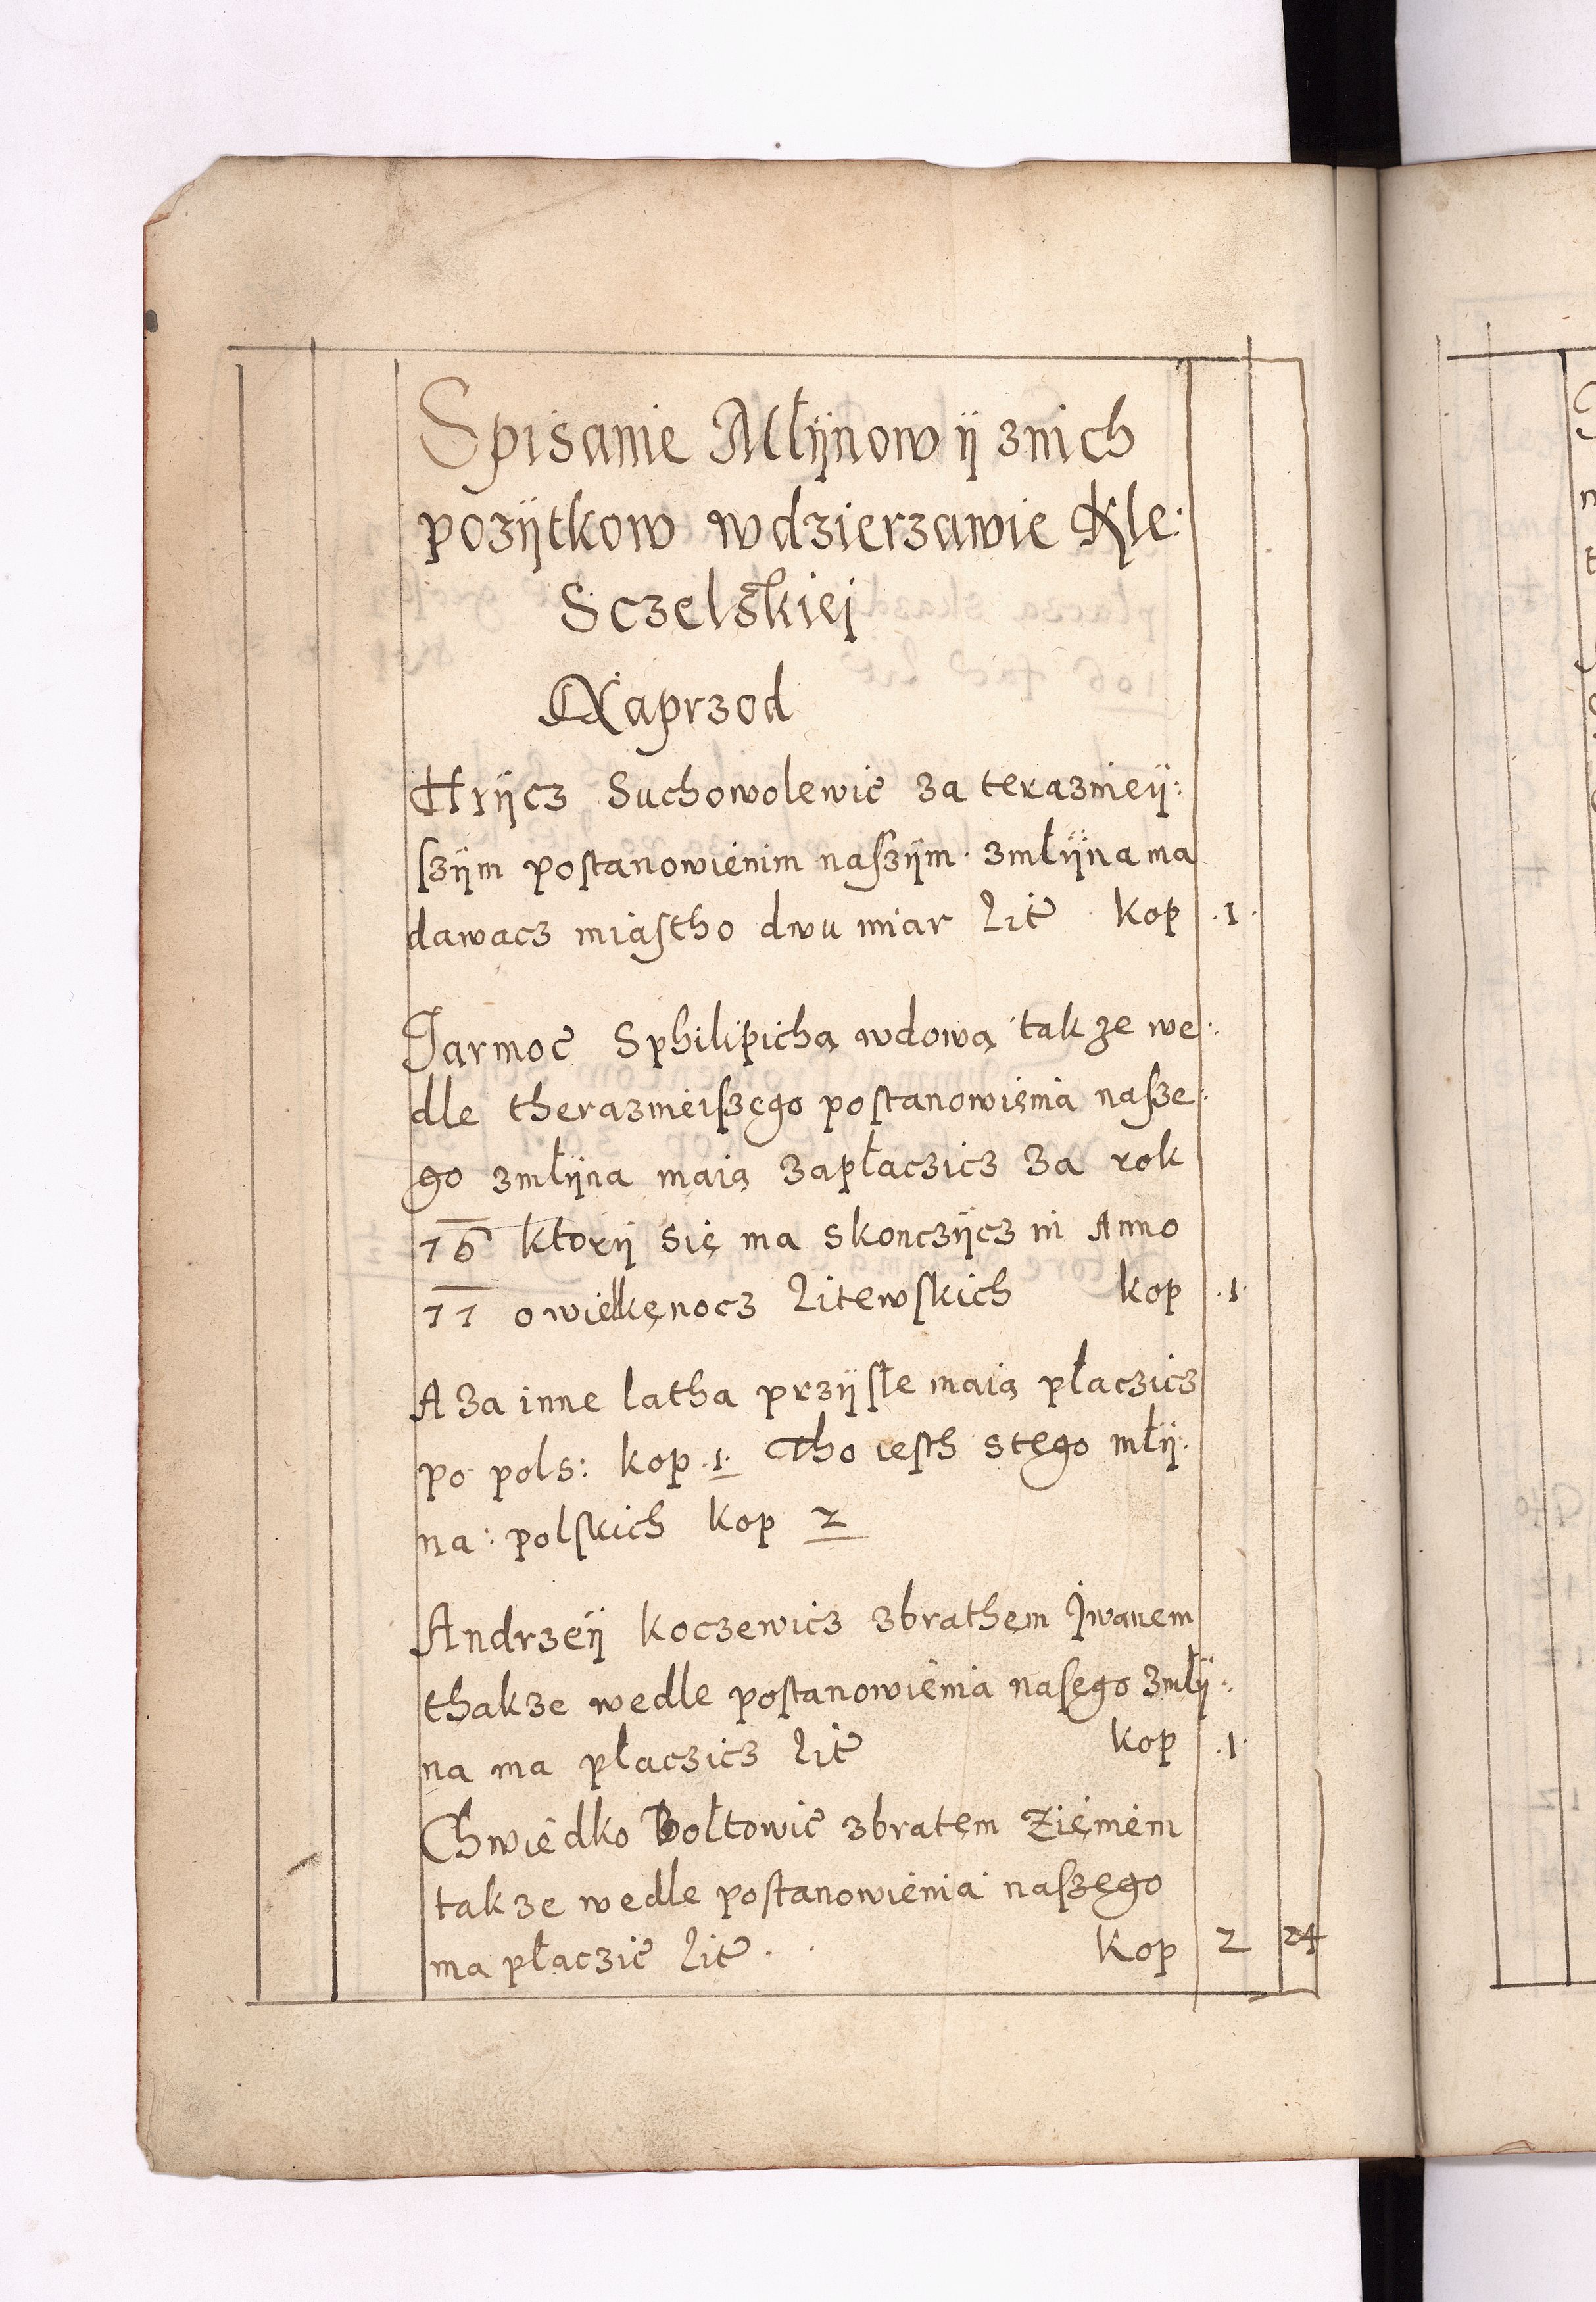 Spisanie Młÿnow ÿ znich
pozÿtkow w dzierzawie Kle:
Sczelskiej
Naprzod
Hrÿcz Suchowolewic za teraznieÿ:
szÿm postanowienim naszÿm. zmłÿna ma
dawacz miastho dwu miar Lit kop .1.
Jarmoc Sphilipicha wdową tak ze we:
dle therazmeiszego postanowienia nasze:
go zmłÿna maią zapłaczicz za rok
76 ktorÿ się ma skonczÿcz in Anno
77 o wielkęnocz Litewskich kop .1.
A za inne latha przÿsłe maią płaczicz
po pols: kop .1. Tho iesth stego młÿ.
na: polskich kop 2
Andrzeÿ Koczewicz zbrathem Jwanem
thakze wedle postanowienia nasego zmłÿ:
na ma płaczicz Lit kop .1.
Chwiedko Bołtowic zbratem Ziemiem
takze wedle postanowienia naszego
ma płaczic Lit . . Kop 2 24